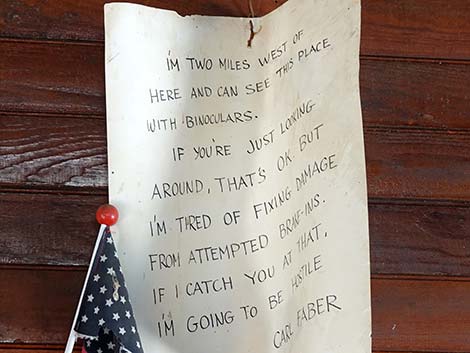 I'M TWO MILES WEST OF
HERE AND CAN SEE THIS PLACE
WITH BINOCULARS.
IF YOU'RE JUST LOOKING
AROUND, THAT'S OK BUT
I'M TIRED OF FIXING DAMAGE
FROM ATTEMPTED BRAKE-INS.
IF I CATCH YOU AT THAT,
I'M GOING TO BE HOSTILE
CARL FABER